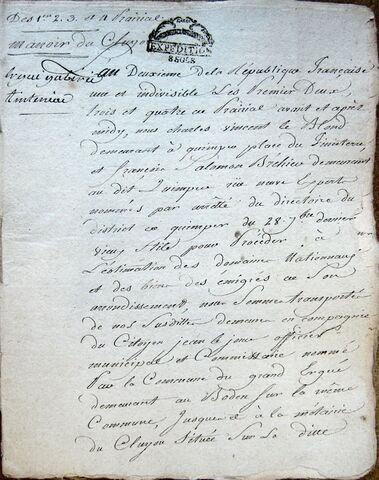 Des 1er 2. 3. et 4 Prairial
manoir du
EXPEDITION
8 SOLS
au Deuxieme de la République française
une et indivisible Les Premier Deux,
trois et quatre au Prairial avant et après
midy, nous charles vincent le Blond
demeurant a quimper place du finisterre
et françois Salomon Bréhier demeurant
au dit Quimper rue neuve Expert
nommés par arrêté du directoire du
district de quimper du 28. 7bre dernier
vieux stile pour Procéder a
L'estimation des domaines Nationaux
et des biens des émigrés au Son
arrondissement, nous Somme transportés
de nos Susdittes demeures en compagnie
du Citoyen jean le jeune officier
municipal et Commissaire nommé
Par la Commune du grand Ergué
demeurant au Boden sur la même
Commune, jusques a la métairie
du Cluyou Située Sur La ditte